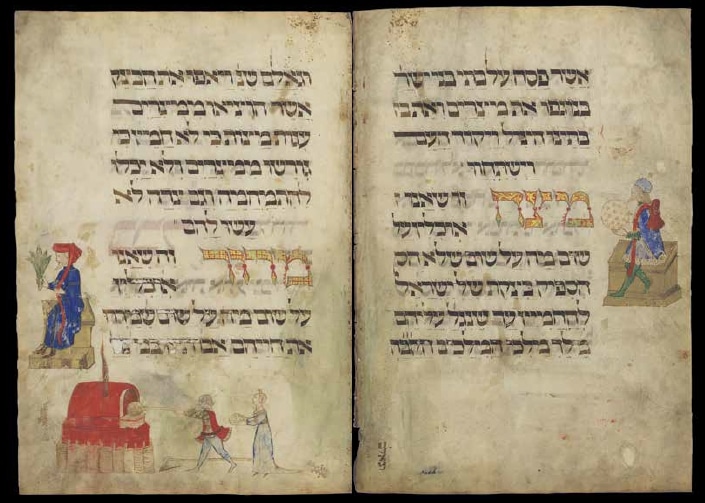 אשר פסח על בתי בני ישר
בנוגפו את מצרים ואת בתי
בתינו הציל ויקוד העם
וישתחוו
מצה זו שאנו
אוכלין על
שום מה על שום שלא הס
הספיק בצקת של ישראל
להחמיץ עד שנגלה עליהם
מלך מלכי המלכים הקבה
וגאלם שנ ויאפו את הבצק
אשר הוציאו ממצרים
עוגות מצות כי לא חמץ כי
גורשו ממצרים ולא יכלו
להתמהמה וגם צדה לא
עשו להם
מרור זה שאנו
אוכלין
על שום מה על שום שמררו
את חייהם